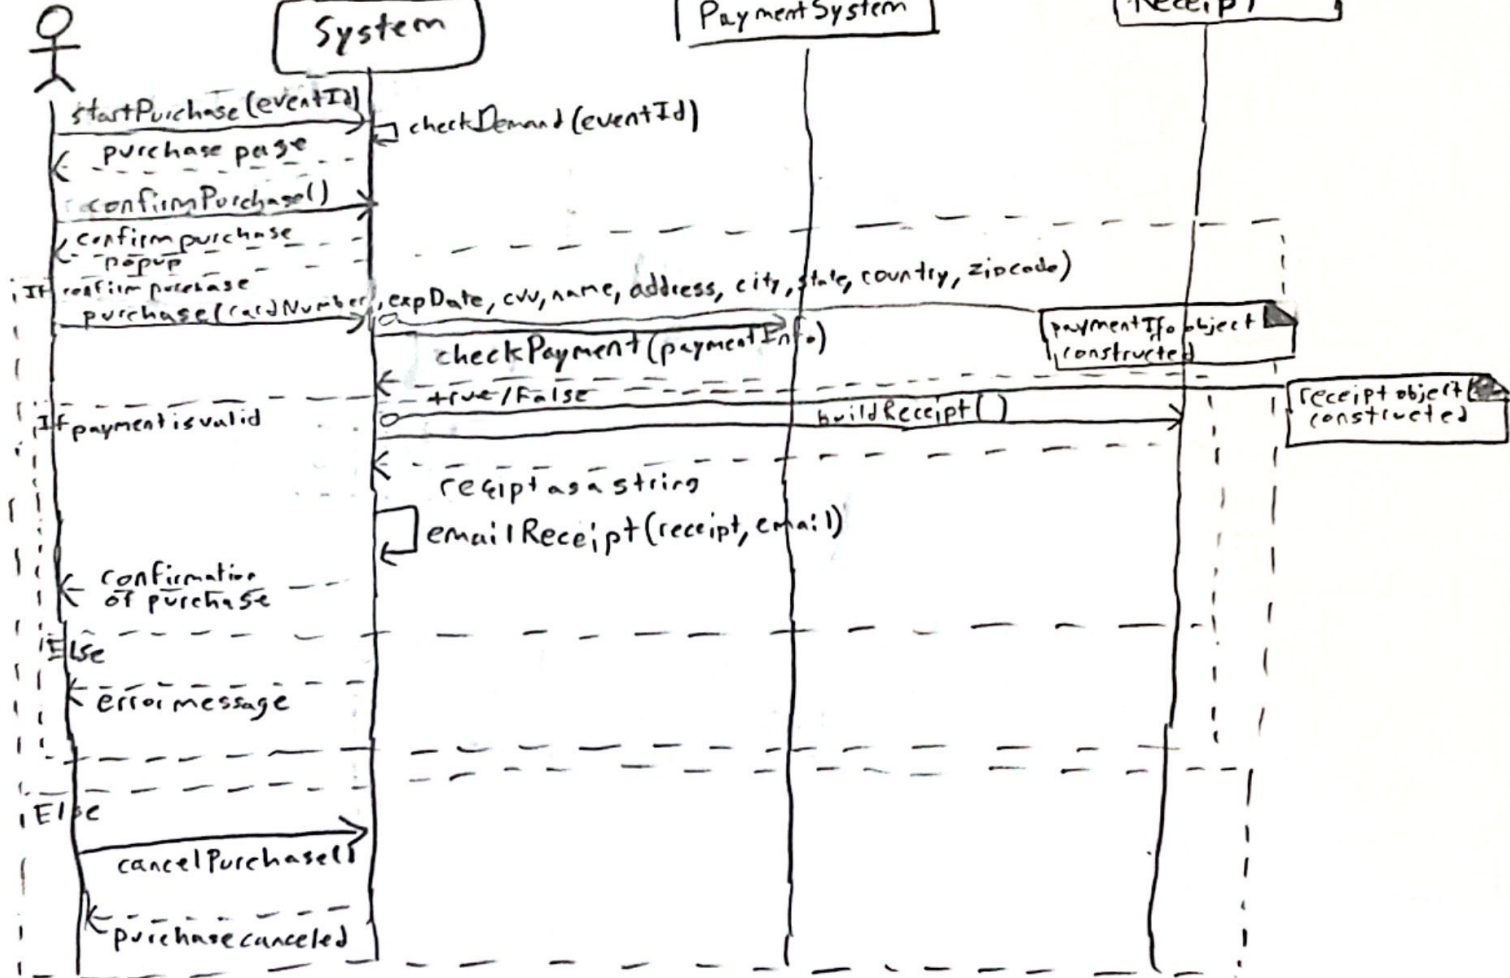 System
PaymentSystem
Receipt
startPurchase(eventId)
checkDemand(eventId)
purchase page
confirmPurchase()
confirm purchase
popup
If confirm purchase
purchase(cardNumber, expDate, cvv, name, address, city, state, country, zipcode)
paymentIfo object
constructed
checkPayment(paymentInfo)
true/False
If payment is valid
buildReceipt()
receipt object
constructed
reciept as a string
emailReceipt(receipt, email)
confirmation
of purchase
Else
error message
Else
cancelPurchase()
purchase canceled